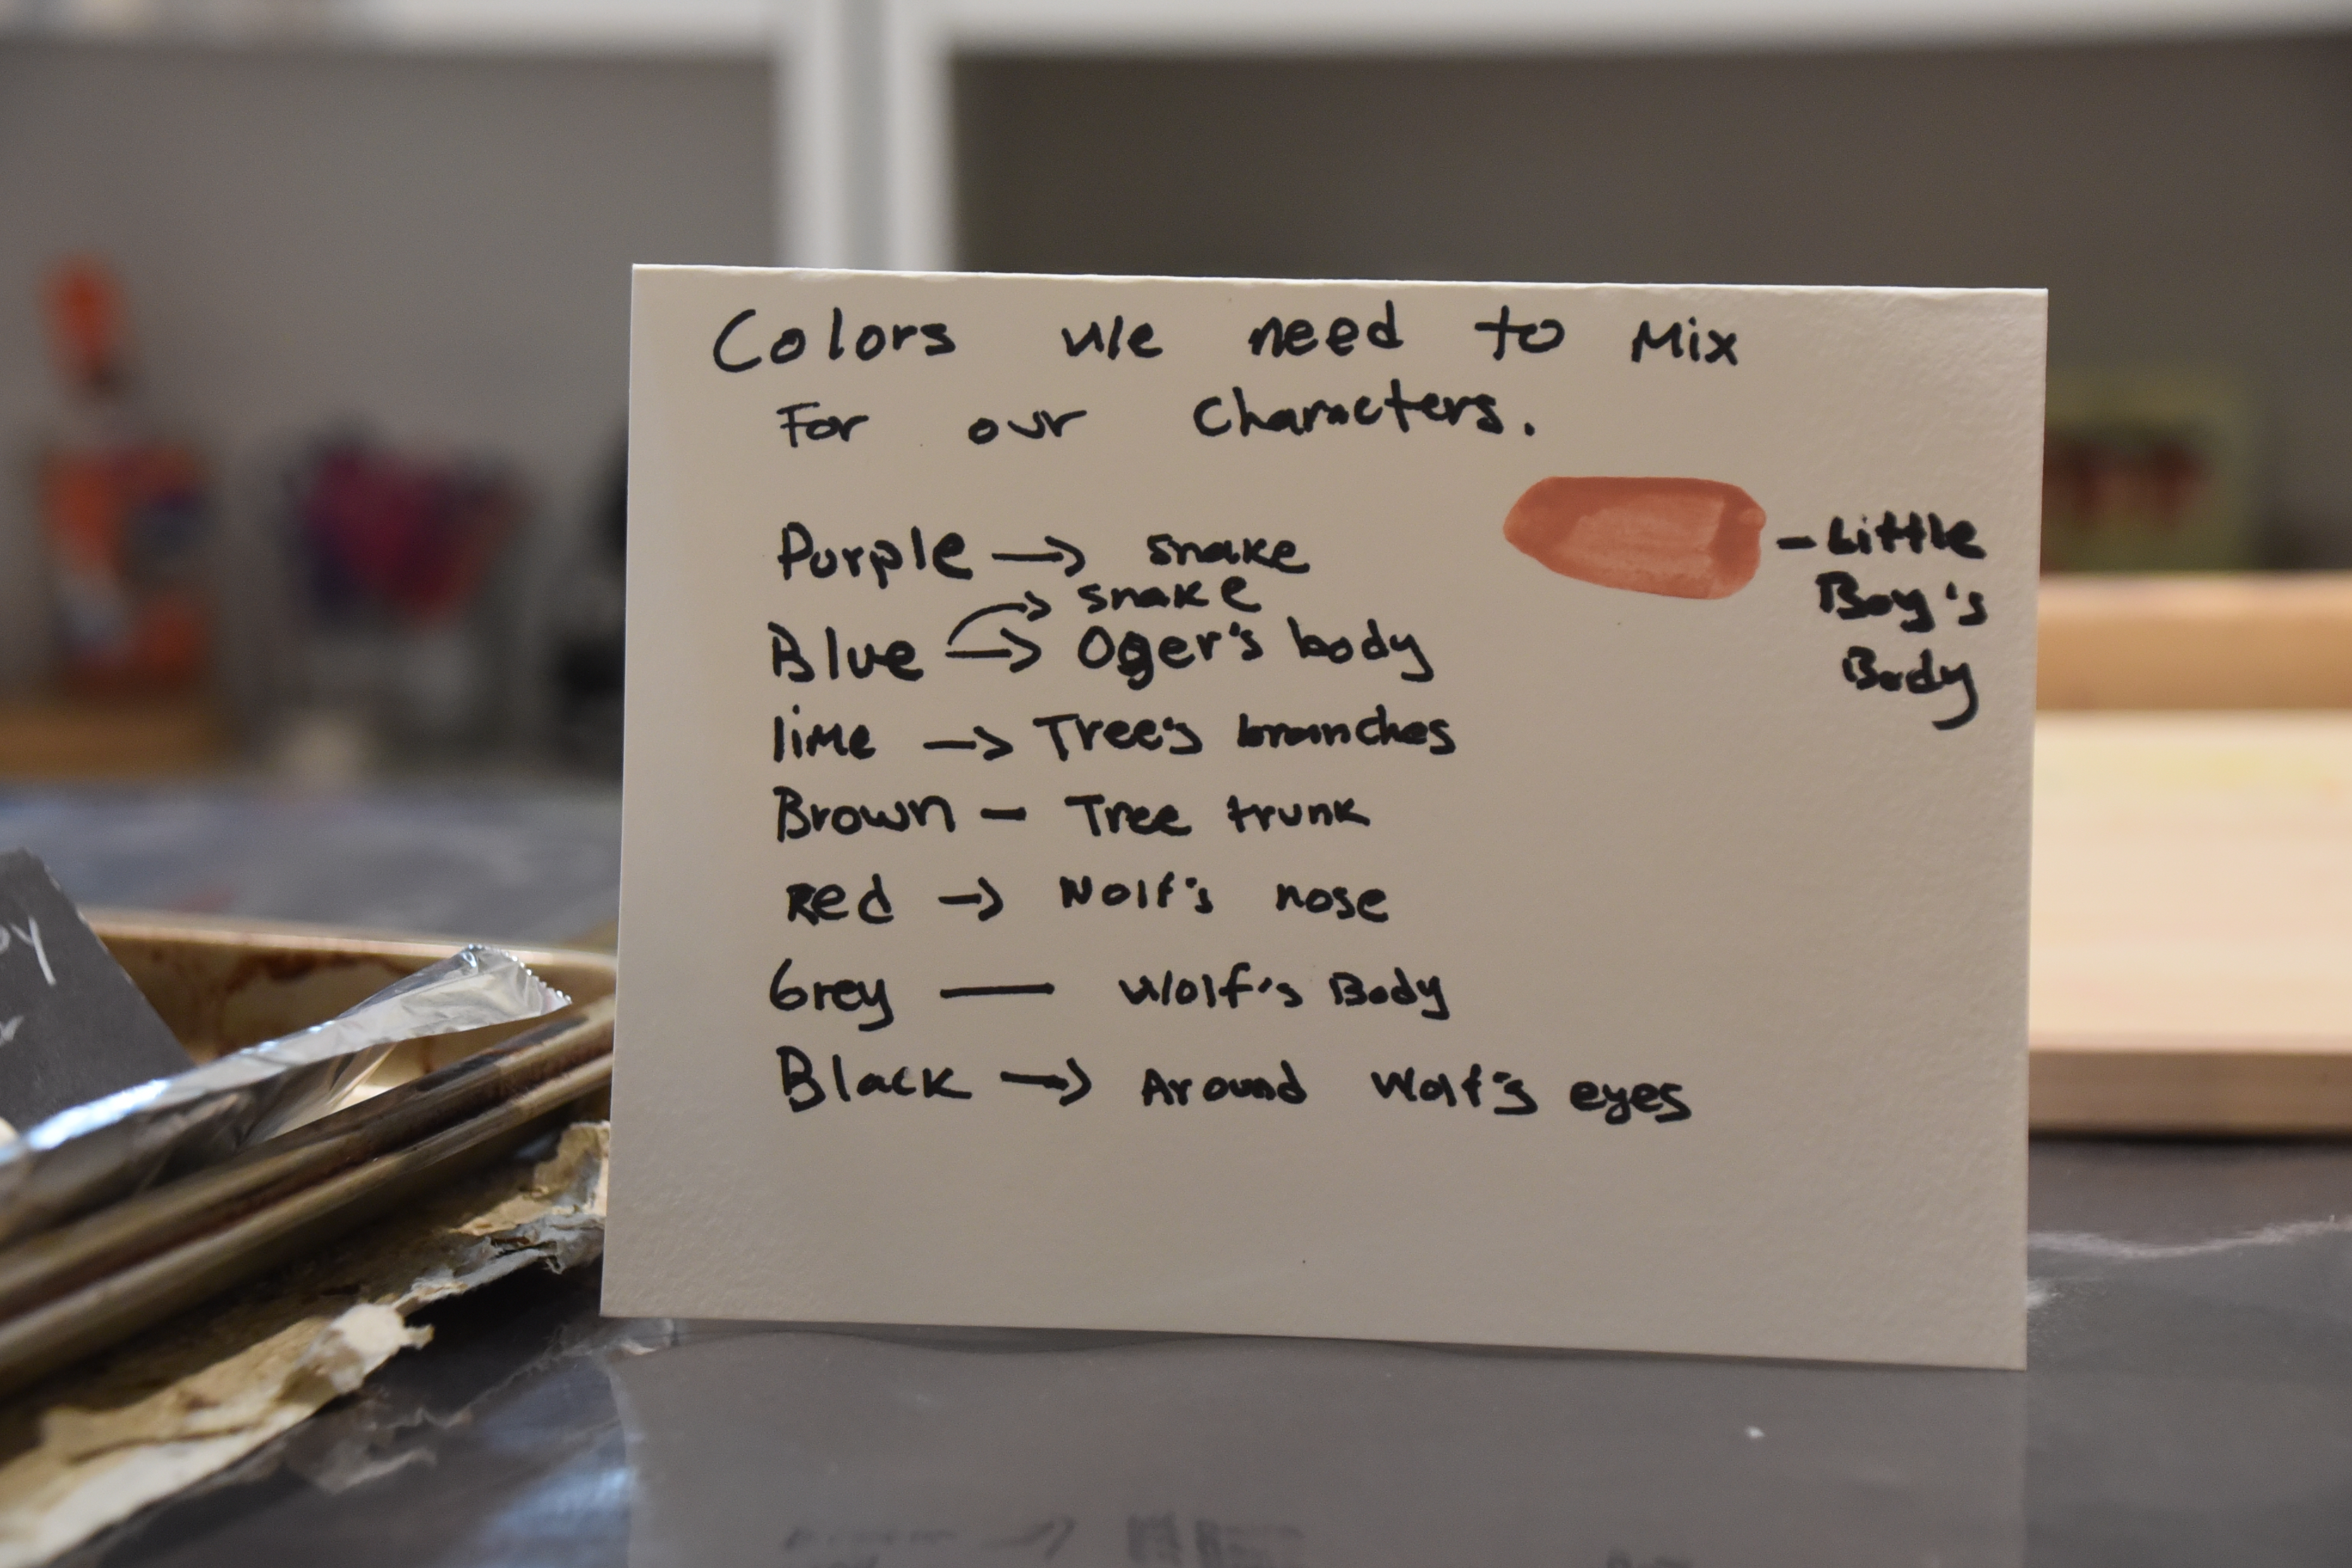 Colors we need to Mix
For our Characters.
Purple → snake
snake
Blue → Oger's body
lime → Tree's branches
Brown — Tree trunk
Red → Wolf's nose
Grey — Wolf's Body
Black → Around Wolf's eyes
- Little
Boy's
Body